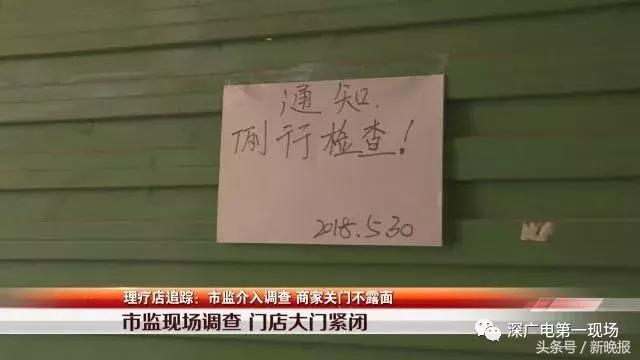 通知.
例行检查!
2018.5.30
理疗店追踪：市监介入调查 商家关门不露面
市监现场调查 门店大门紧闭
深广电第一现场
头条号 / 新晚报